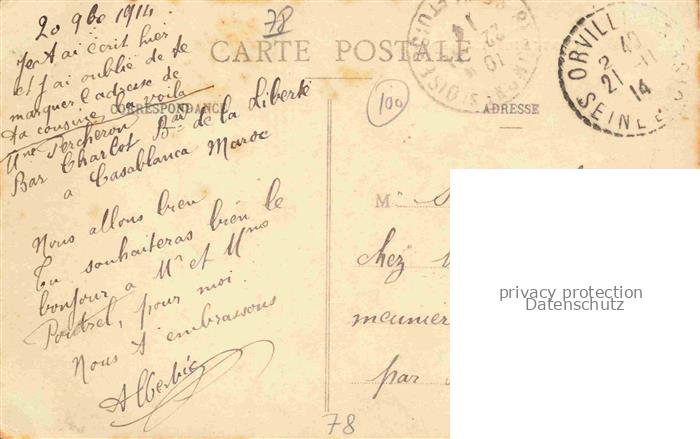 20 9bre 1914
Je t'ai écrit hier
et j'ai oublié de te
marquer l'adresse de
ta cousine la voila
Mme Sercheron
Bar Charlot Bard de la Liberté
a Casablanca Maroc
Nous allons bien
Tu souhaiteras bien le
bonjour a Mr et Mme
Poutrel, pour moi
Nous t'embrassons
A
78
CARTE POSTALE
CORRESPONDANCE
100
ADRESSE
ORVILL
2 40
21 11
14
SEINE
M
chez
meunier
par
78
privacy protection
Datenschutz